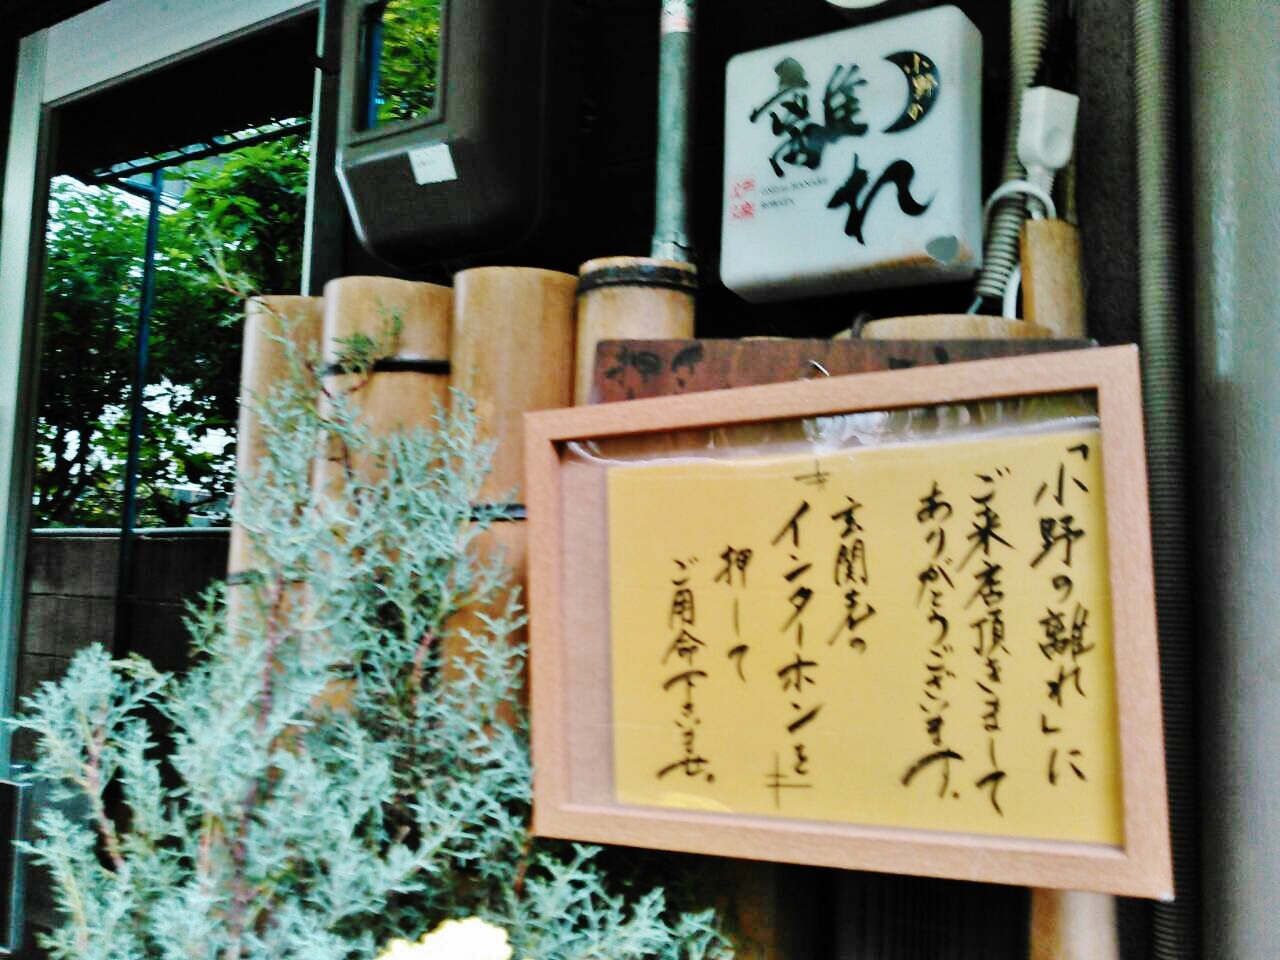 小野の
離れ
「小野の離れ」に
ご来店頂きまして
ありがとうございます。
玄関先の
インターホンを
押して
ご用命下さいませ。